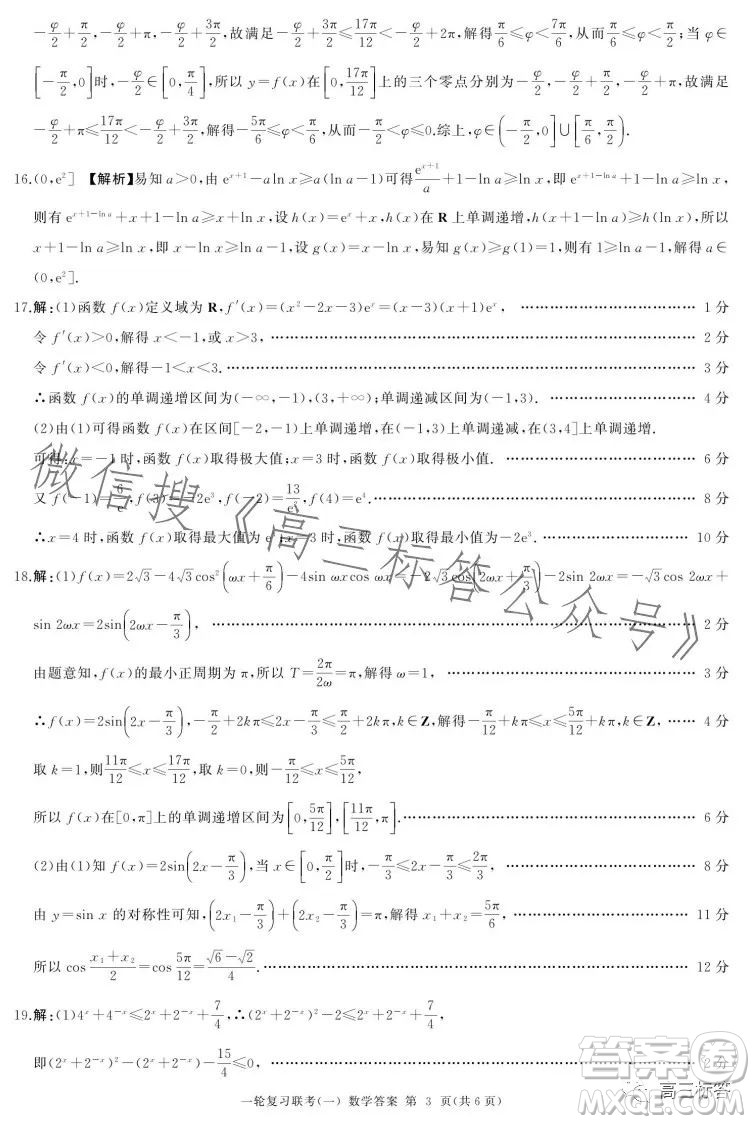 -φ/2+π/2,-φ/2+π,-φ/2+3π/2,故满足-φ/2+3π/2≤17π/12<-φ/2+2π,解得π/6≤φ<7π/6,从而π/6≤φ<π/2;当 φ∈
[-π/2,0]时,-φ/2∈[0,π/4],所以 y=f(x)在[0,17π/12]上的三个零点分别为-φ/2,-φ/2+π/2,-φ/2+π,故满足
-φ/2+π≤17π/12<-φ/2+3π/2,解得-5π/6≤φ<π/6,从而-π/2<φ≤0.综上,φ∈(-π/2,0]∪[π/6,π/2).
16.(0,e²] 【解析】易知 a>0,由 e^(x+1)-aln x≥a(ln a-1)可得e^(x+1)/a+1-ln a≥ln x,即 e^(x+1-ln a)+1-ln a≥ln x,
则有 e^(x+1-ln a)+x+1-ln a≥x+ln x,设 h(x)=e^x+x,h(x)在 R 上单调递增,h(x+1-ln a)≥h(ln x),所以
x+1-ln a≥ln x,即 x-ln x≥ln a-1,设 g(x)=x-ln x,易知 g(x)≥g(1)=1,则有 1≥ln a-1,解得 a∈
(0,e²].
17.解:(1)函数 f(x)定义域为 R,f′(x)=(x²-2x-3)e^x=(x-3)(x+1)e^x, …… 1 分
令 f′(x)>0,解得 x<-1,或 x>3, …… 2 分
令 f′(x)<0,解得-1<x<3. …… 3 分
∴函数 f(x)的单调递增区间为(-∞,-1),(3,+∞);单调递减区间为(-1,3). …… 4 分
(2)由(1)可得函数 f(x)在区间[-2,-1)上单调递增,在(-1,3)上单调递减,在(3,4]上单调递增.
可得:x=-1 时,函数 f(x)取得极大值;x=3 时,函数 f(x)取得极小值. …… 6 分
又 f(-1)=6/e,f(3)=-2e³,f(-2)=13/e²,f(4)=e⁴. …… 8 分
∴x=4 时,函数 f(x)取得最大值为 e⁴,x=3 时,函数 f(x)取得最小值为-2e³. …… 10 分
18.解:(1)f(x)=2√3-4√3cos²(ωx+π/6)-4sin ωxcos ωx=-2√3cos(2ωx+π/3)-2sin 2ωx=-√3cos 2ωx+
sin 2ωx=2sin(2ωx-π/3), …… 2 分
由题意知,f(x)的最小正周期为 π,所以 T=2π/2ω=π,解得 ω=1, …… 3 分
∴f(x)=2sin(2x-π/3),-π/2+2kπ≤2x-π/3≤π/2+2kπ,k∈Z,解得-π/12+kπ≤x≤5π/12+kπ,k∈Z, …… 4 分
取 k=1,则11π/12≤x≤17π/12,取 k=0,得-π/12≤x≤5π/12,
所以 f(x)在[0,π]上的单调递增区间为[0,5π/12],[11π/12,π]. …… 6 分
(2)由(1)知 f(x)=2sin(2x-π/3),当 x∈[0,π/2]时,-π/3≤2x-π/3≤2π/3, …… 8 分
由 y=sin x 的对称性可知,(2x₁-π/3)+(2x₂-π/3)=π,解得 x₁+x₂=5π/6, …… 11 分
所以 cos (x₁+x₂)/2=cos 5π/12=(√6-√2)/4. …… 12 分
19.解:(1)4^x+4^(-x)≤2^x+2^(-x)+7/4,∴(2^x+2^(-x))²-2≤2^x+2^(-x)+7/4,
即(2^x+2^(-x))²-(2^x+2^(-x))-15/4≤0, …… 2 分
一轮复习联考(一) 数学答案 第 3 页(共 6 页)
微信搜《高三标答公众号》
高三标答
答案圈
MXQE.COM